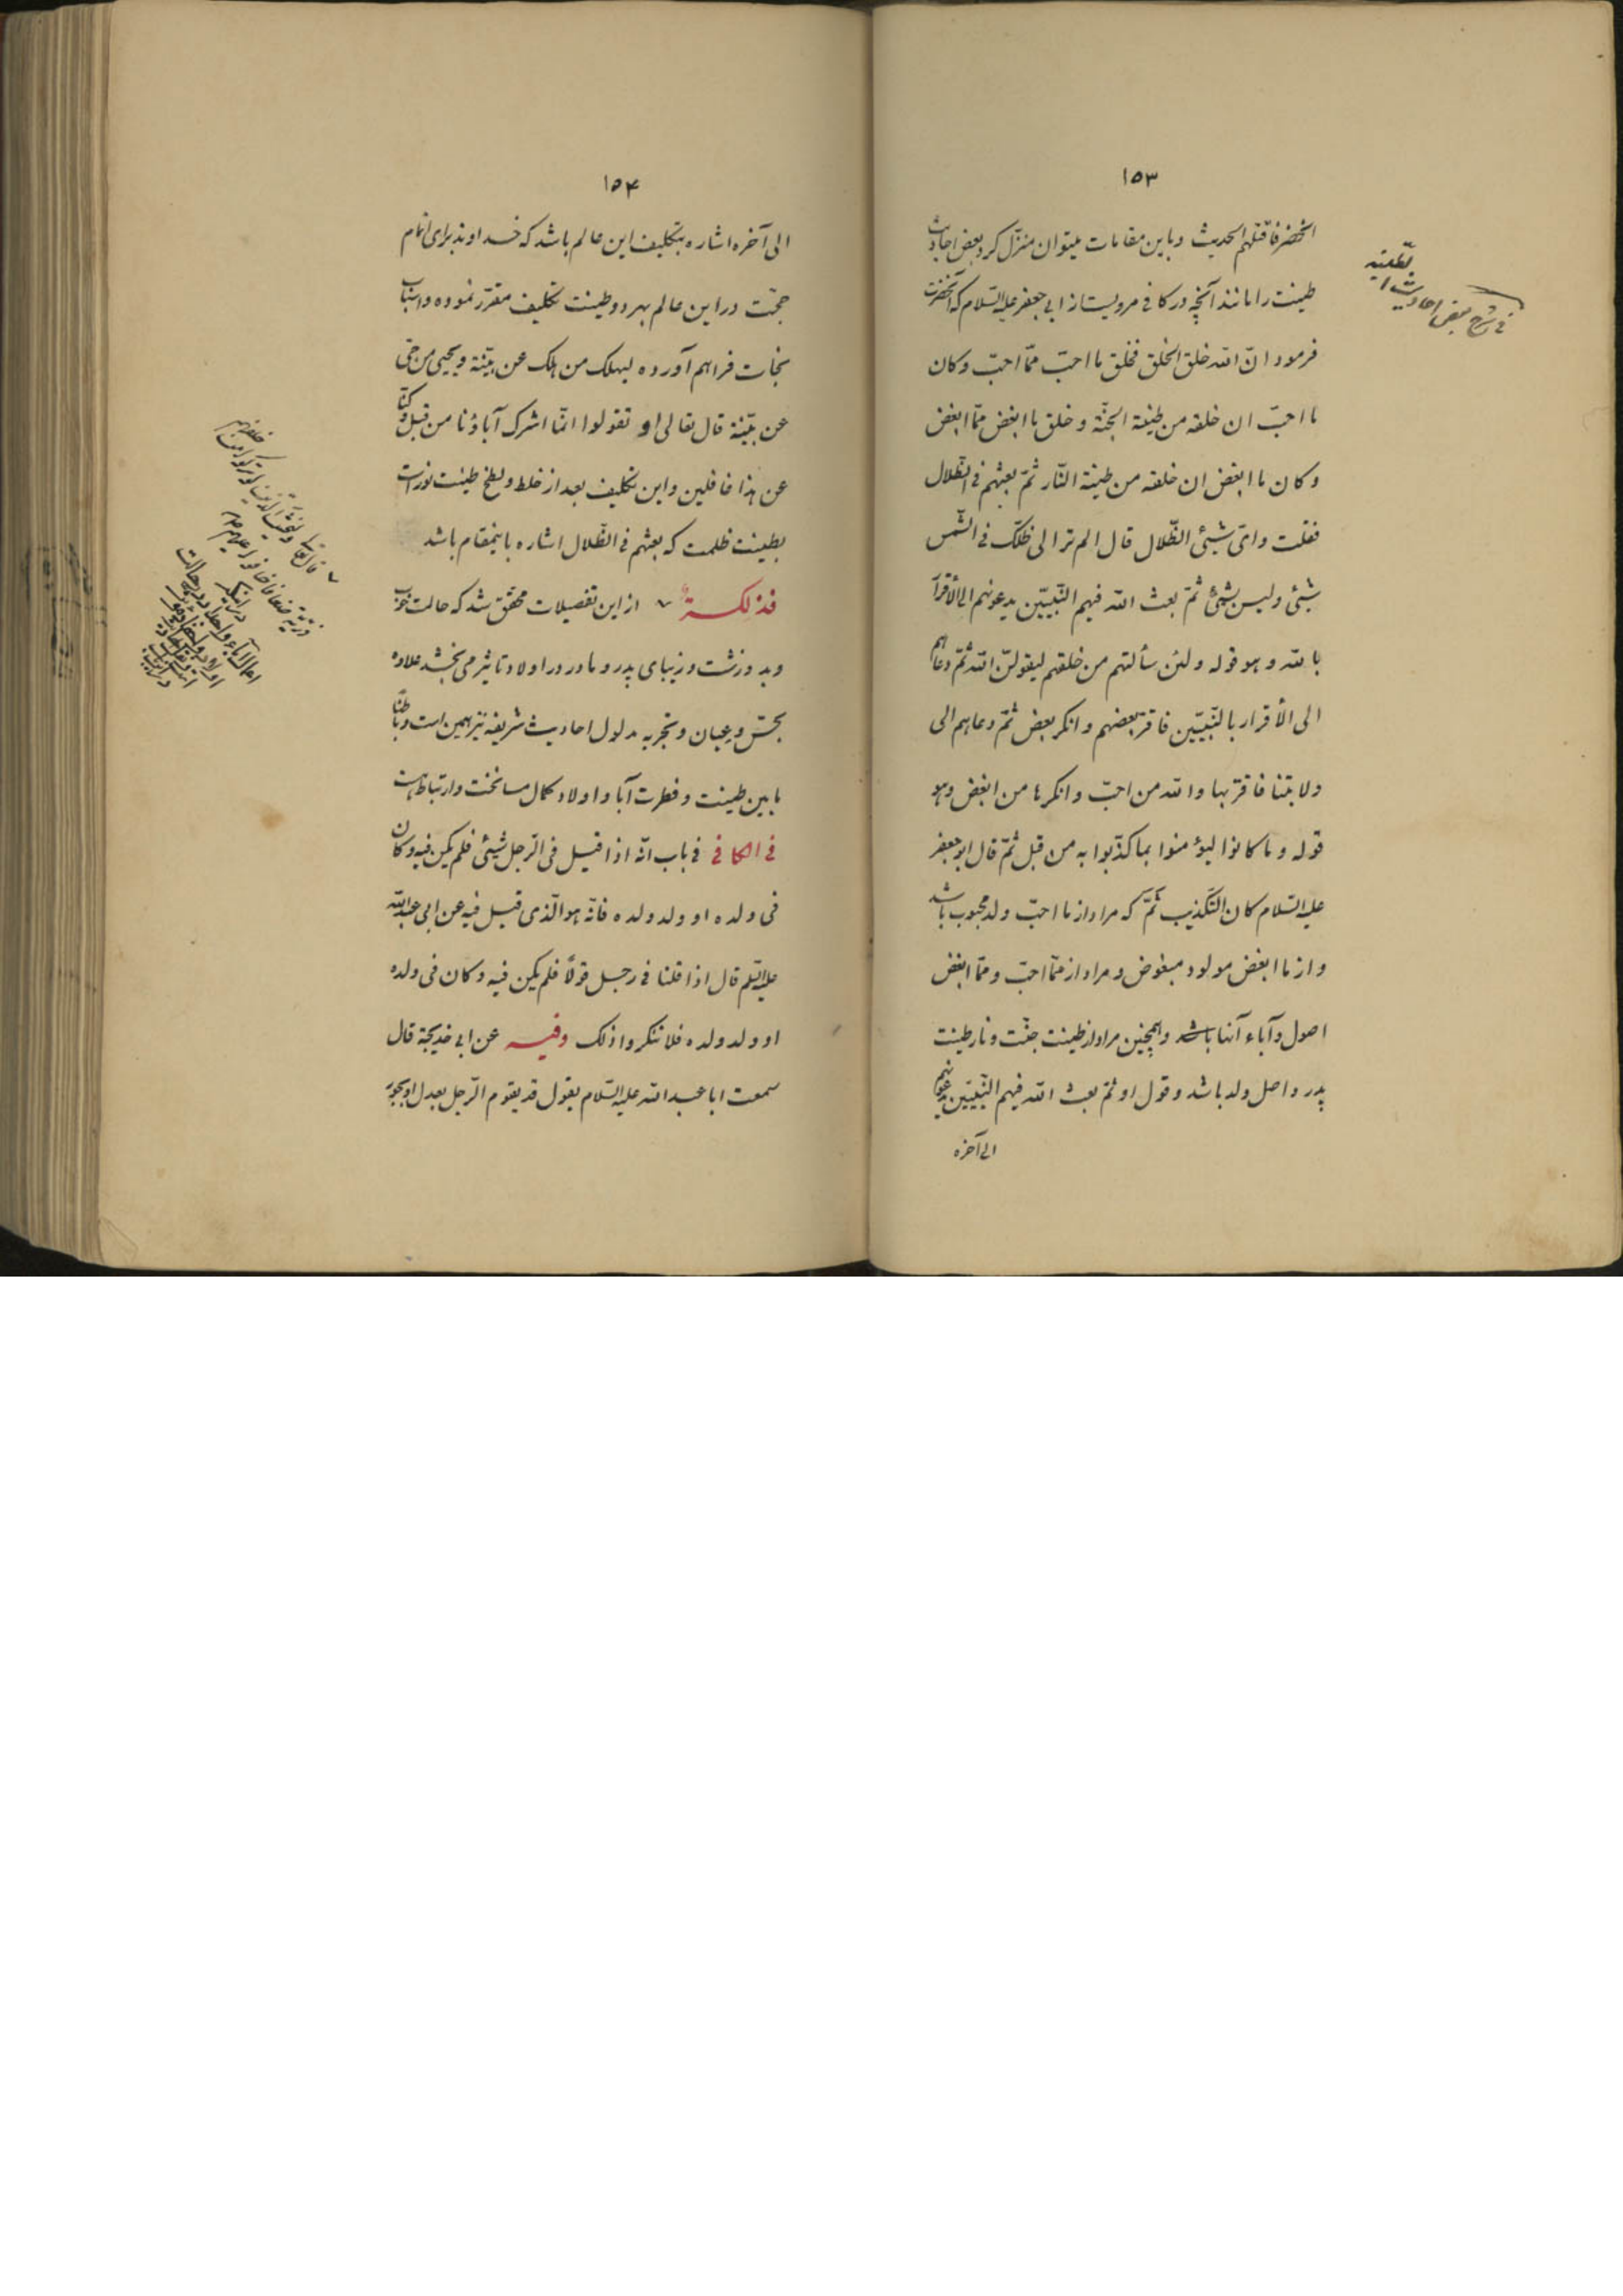 ١٥٣
اخضر فاقتلهم الحدیث و باین مقامات میتوان منزّل کرد بعض احادیث
طینت را مانند آنچه در کافی مرویست از ابی جعفر علیه السّلام که آنحضرت
فرمود انّ الله خلق الخلق فخلق ما احبّ ممّا احبّ و کان
ما احبّ ان خلقه من طینة الجنّة و خلق ما ابغض ممّا ابغض
و کان ما ابغض ان خلقه من طینة النّار ثمّ بعثهم فی الظّلال
فقلت و ایّ شیئی الظّلال قال الم تر الی ظلّک فی الشّمس
شیئی و لیس بشیئی ثمّ بعث الله فیهم النّبیّین یدعونهم الی الأقرار
بالله و هو قوله و لئن سألتهم من خلقهم لیقولنّ الله ثمّ دعاهم
الی الأقرار بالنّبیّین فاقرّ بعضهم و انکر بعض ثمّ دعاهم الی
ولایتنا فاقرّ بها والله من احبّ و انکرها من ابغض و هو
قوله و ما کانوا لیؤمنوا بما کذّبوا به من قبل ثمّ قال ابو جعفر
علیه السّلام کان التّکذیب ثَمّ که مراد از ما احبّ ولد محبوب باشد
و از ما ابغض مولود مبغوض و مراد از ممّا احبّ و ممّا ابغض
اصول و آباء آنها باشد و همچنین مراد از طینت جنّت و نار طینت
پدر و اصل ولد باشد و قول او ثمّ بعث الله فیهم النّبیّین یدعونهم
الی آخره
فی شرح بعض احادیث
الطّینة
١٥۴
الی آخره اشاره بتکلیف این عالم باشد که خداوند برای اتمام
حجّت در این عالم بهر دو طینت تکلیف مقرّر نموده و اسباب
نجات فراهم آورده لیهلک من هلک عن بیّنة و یحیی من حیّ
عن بیّنة قال تعالی او تقولوا انّما اشرک آباؤنا من قبل و کنّا
عن هذا غافلین و این تکلیف بعد از خلط و لطخ طینت نور است
بطینت ظلمت که بعثهم فی الظّلال اشاره باینمقام باشد
فذلکة از این تفصیلات محقّق شد که حالت خوب
و بد و زشت و زیبای پدر و مادر در اولاد تاثیر می بخشد علاوه
بحسّ و عیان و تجربه مدلول احادیث شریفه نیز همین است و باطنًا
ما بین طینت و فطرت آبا و اولاد کمال مسانخت و ارتباط است
فی الکافی فی باب انّه اذا قیل فی الرّجل شیئی فلم یکن فیه و کان
فی ولده او ولد ولده فانّه هو الّذی قیل فیه عن ابی عبدالله
علیه السّلم قال اذا قلنا فی رجل قولًا فلم یکن فیه و کان فی ولده
او ولد ولده فلا تنکروا ذلک وفیه عن ابی خدیجة قال
سمعت ابا عبدالله علیه السّلام یقول قد یقوم الرّجل بعدل او بجور
قال تعالی و لیخش الّذین لو ترکوا من خلفهم
ذریّة ضعافا خافوا علیهم